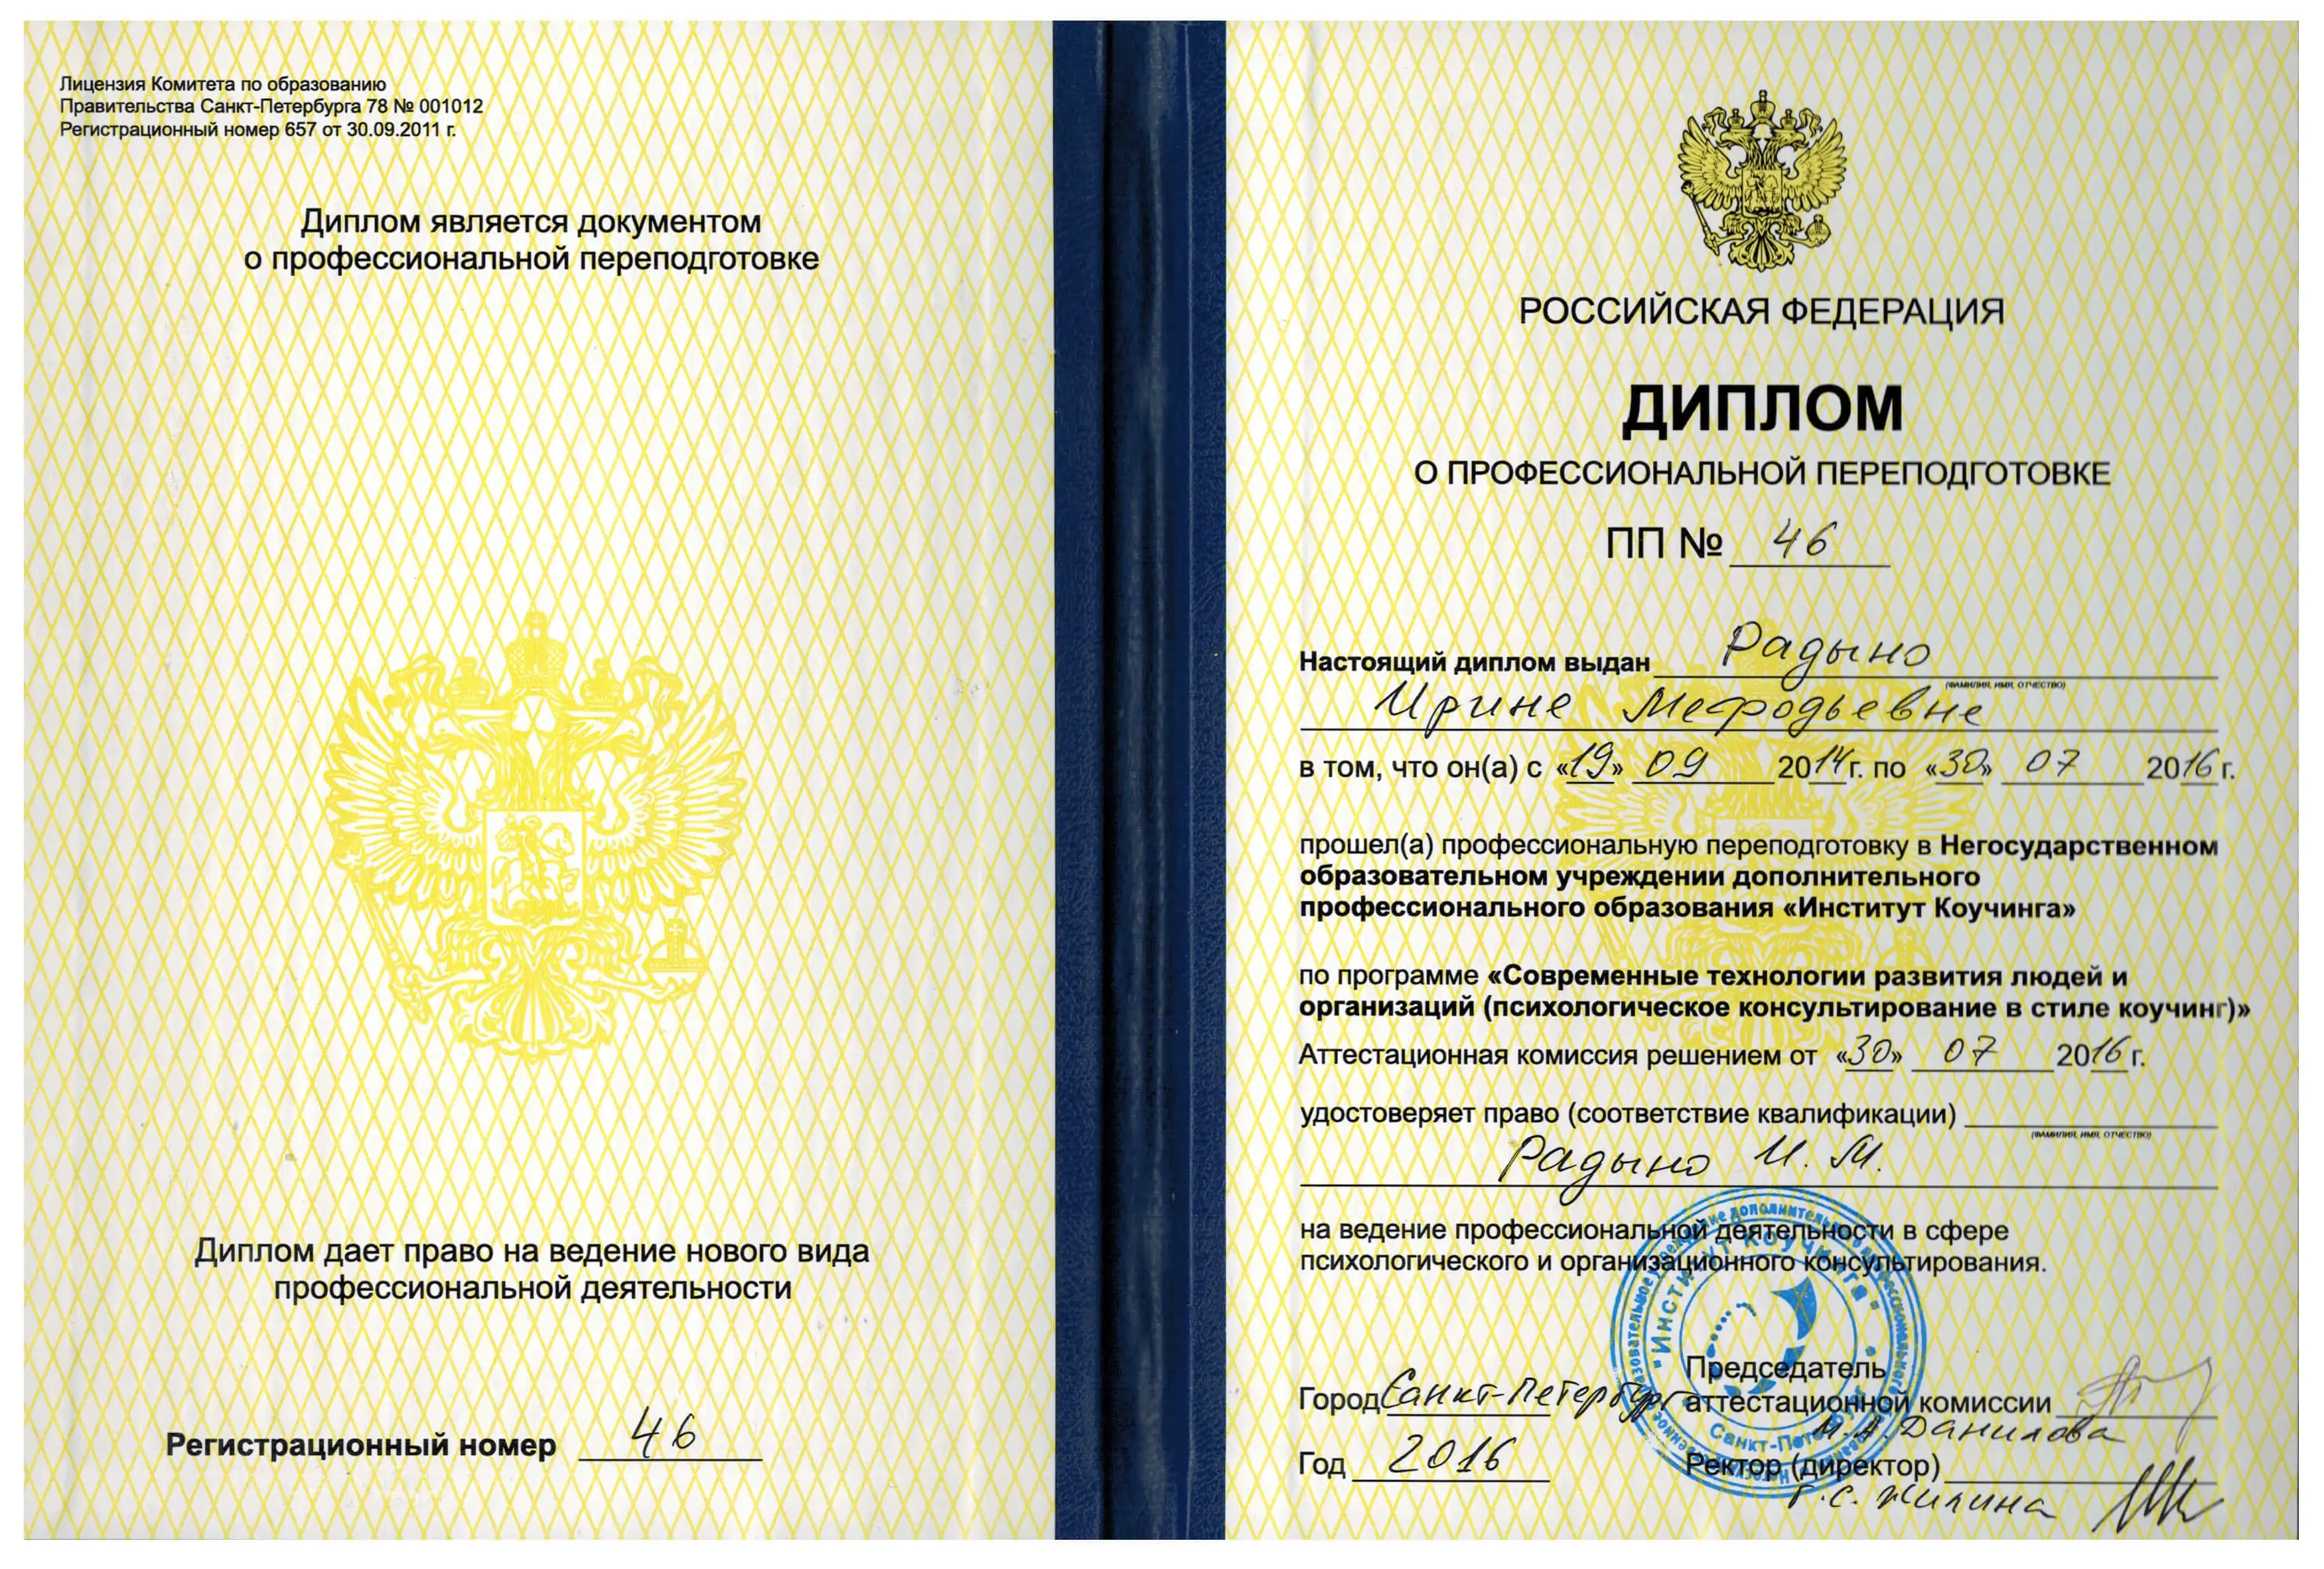 Лицензия Комитета по образованию
Правительства Санкт-Петербурга 78 № 001012
Регистрационный номер 657 от 30.09.2011 г.
Диплом является документом
о профессиональной переподготовке
Диплом дает право на ведение нового вида
профессиональной деятельности
Регистрационный номер 46
РОССИЙСКАЯ ФЕДЕРАЦИЯ
ДИПЛОМ
О ПРОФЕССИОНАЛЬНОЙ ПЕРЕПОДГОТОВКЕ
ПП № 46
Настоящий диплом выдан Радыно
(ФАМИЛИЯ, ИМЯ, ОТЧЕСТВО)
Ирине Мефодьевне
в том, что он(а) с «19» 09 2014 г. по «30» 07 2016 г.
прошел(а) профессиональную переподготовку в Негосударственном
образовательном учреждении дополнительного
профессионального образования «Институт Коучинга»
по программе «Современные технологии развития людей и
организаций (психологическое консультирование в стиле коучинг)»
Аттестационная комиссия решением от «30» 07 2016 г.
удостоверяет право (соответствие квалификации)
(ФАМИЛИЯ, ИМЯ, ОТЧЕСТВО)
Радыно И. М.
на ведение профессиональной деятельности в сфере
психологического и организационного консультирования.
"Институт Коучинга"
Санкт-Петербург
Председатель
Город Санкт-Петербург аттестационной комиссии
И.А. Данилова
Год 2016 Ректор (директор)
Г.С. Жилина